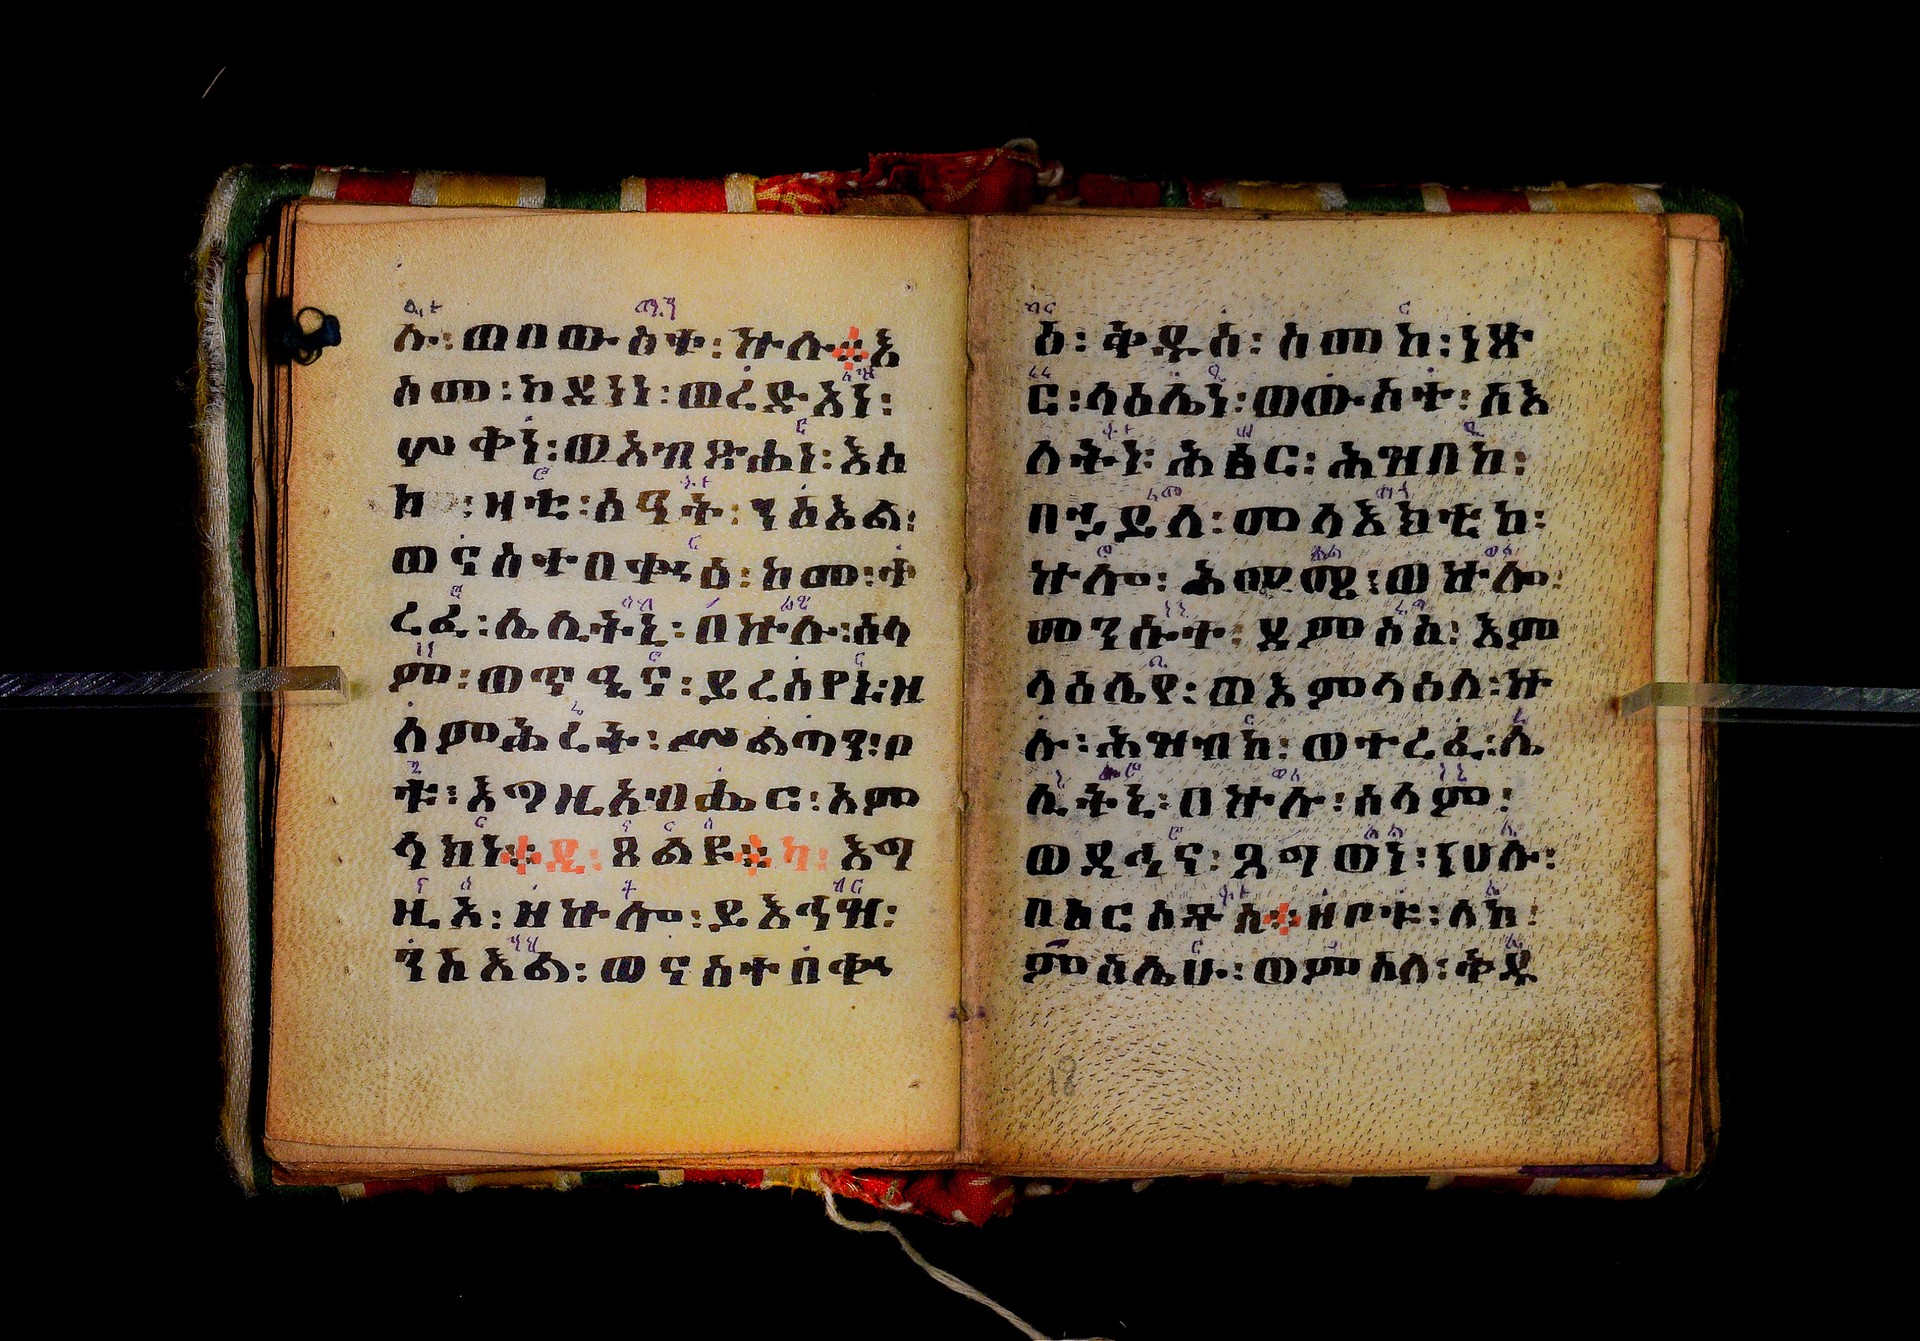 ሉ፡ወበውስተ፡ኵሉ፨እ
ስመ፡ከደነነ፡ወረድአነ፡
ወአንጽሐነ፡እስ
ከ፡ዛቲ፡ሰዓት፡ንስእል፡
ወናስተበቍዕ፡ከመ፡ት
ረፈ፡ሌሊትኒ፡በኵሉ፡ሰላ
ም፡ወጥዒና፡ይረስየነ፡ዘ
ለምሕረት፡ሥልጣን፡ቦ
ቱ፡እግዚአብሔር፡አም
ላክነ፨ዲ፡ጸልዩ፨ካ፡እግ
ዚአ፡ዘኵሎ፡ይእኅዝ፡
ንስእል፡ወናስተበቍ
ዕ፡ቅዱስ፡ስመከ፡ነጽ
ር፡ላዕሌነ፡ወውስተ፡ለእ
ለትነ፡ሕፅር፡ሕዝበከ፡
በኃይለ፡መላእክቲከ፡
ኵሎ፡ወኵሎ፡
መንሱተ፡እም
ላዕሌየ፡ወእምላዕለ፡ኵ
ሉ፡ሕዝብከ፡ወተረፈ፡ሌ
ሊትኒ፡በኵሉ፡ሰላም፡
ጸግወነ፡ነሀሉ፡
በክርስቶስ፨ዘቦቱ፡ለከ፡
ምስሌሁ፡ወምስለ፡ቅዱ
18